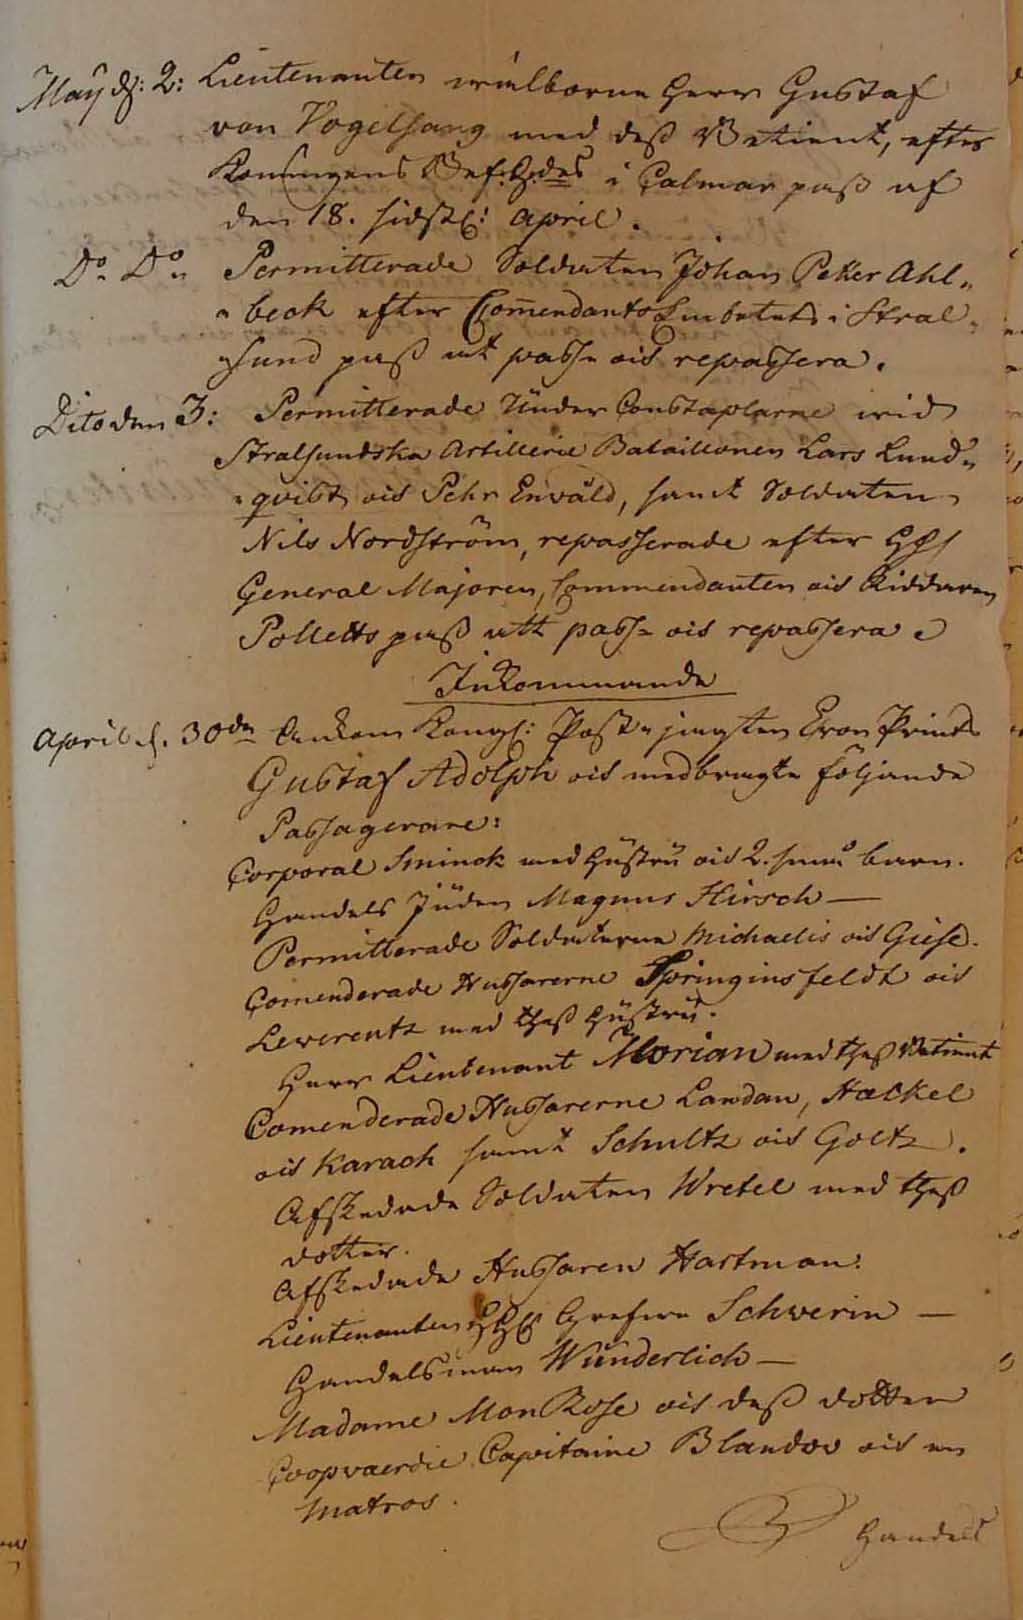 Maÿ d: 2: Lieutenanten wälborne Herr Gustaf
von Vogelsang med dess Betient, efter
Konungens Bef:H:des i Calmar pass af
den 18. sidstl: April.
Do Do Permitterade Soldaten Johan Petter Ahl„
„beck efter Com̄endants Embetets i Stral„
„sund pass att pass- och repassera.
Dito den 3: Permitterade Under Constaplarne wid
Stralsundska Artillerie Bataillonen Lars Lund„
„qvist och Pehr Enwald, samt Soldaten
Nils Nordström, repasserade efter
General Majoren, Commendanten och Riddaren
Polletts pass att pass- och repassera
Inkommande
April d. 30de Ankom Kongl: Post-jagten Cron Prints
Gustaf Adolph och medbragte följande
Passagerare:
Corporal Sminck med Hustru och 2. små barn.
Handels Juden Magnus Hirsch —
Permitterade Soldaterne Michaelis och Giese.
Comenderade Husarerne Springinsfeldt och
Leverentz med thess Hustru.
Herr Lieutenant Morian med thess Betient
Comenderade Husarerne Landau, Hackel
och Karach samt Schultz och Goltz.
Afskedade Soldaten Wretel med thess
dotter.
Afskedade Husaren Hartman.
Lieutenanten Grefve Schwerin —
Handelsman Wunderlich —
Madame Mon Rose och dess dotter
Coopvaerdie Capitaine Blandow och en
Matros.
Handels